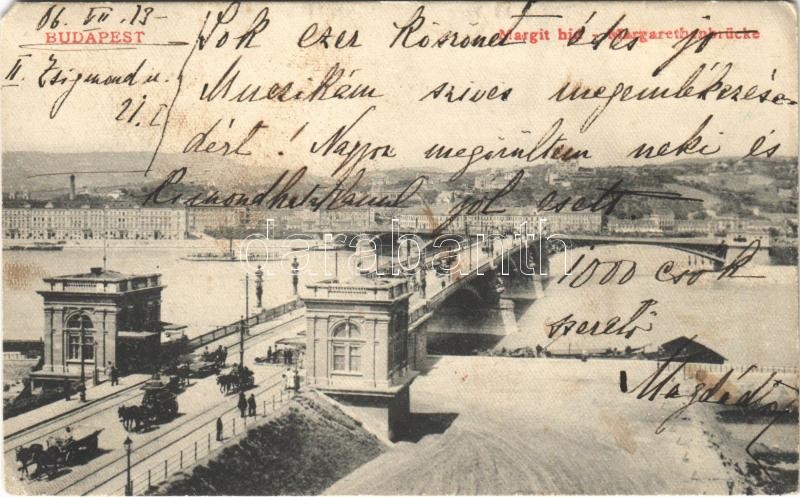 06. VII. 13-
BUDAPEST
Margit híd - Margarethenbrücke
II Zsigmond u.
21. I
Sok ezer köszönet édes jó
Muczikám szives megemlékezése-
dért! Nagyon megörültem neki és
kimondhatatlanul jól esett.
1000 csók
szerető
Magdád
darabanth.com